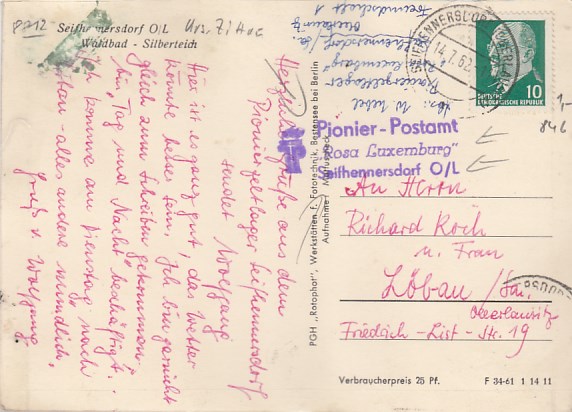 8712
Seifhennersdorf O/L
Waldbad - Silberteich
Herzliche Grüße aus dem
Pionierzeltlager Seifhennersdorf
sendet Wolfgang
Hier ist es ganz gut, das Wetter
könnte besser sein. Ich bin gar nicht
gleich zum Schreiben gekommen,
bin „Tag und Nacht" beschäftigt.
Ich komme am Dienstag nach
- alles andere mündlich,
Gruß v. Wolfgang
Pionierzeltlager
Seifhennersdorf
PGH „Rotophot", Werkstätten f. Fototechnik, Bestensee bei Berlin
Aufnahme:
SEIFHENNERSDORF
14.7.62
10
DEUTSCHE
DEMOKRATISCHE REPUBLIK
1,-
846
Pionier-Postamt
"Rosa Luxemburg"
Seifhennersdorf O/L
An Herrn
Richard Koch
u. Frau
Löbau/Sa.
Oberlausitz
Friedrich-List-Str. 19
Verbraucherpreis 25 Pf.
F 34-61 1 14 11